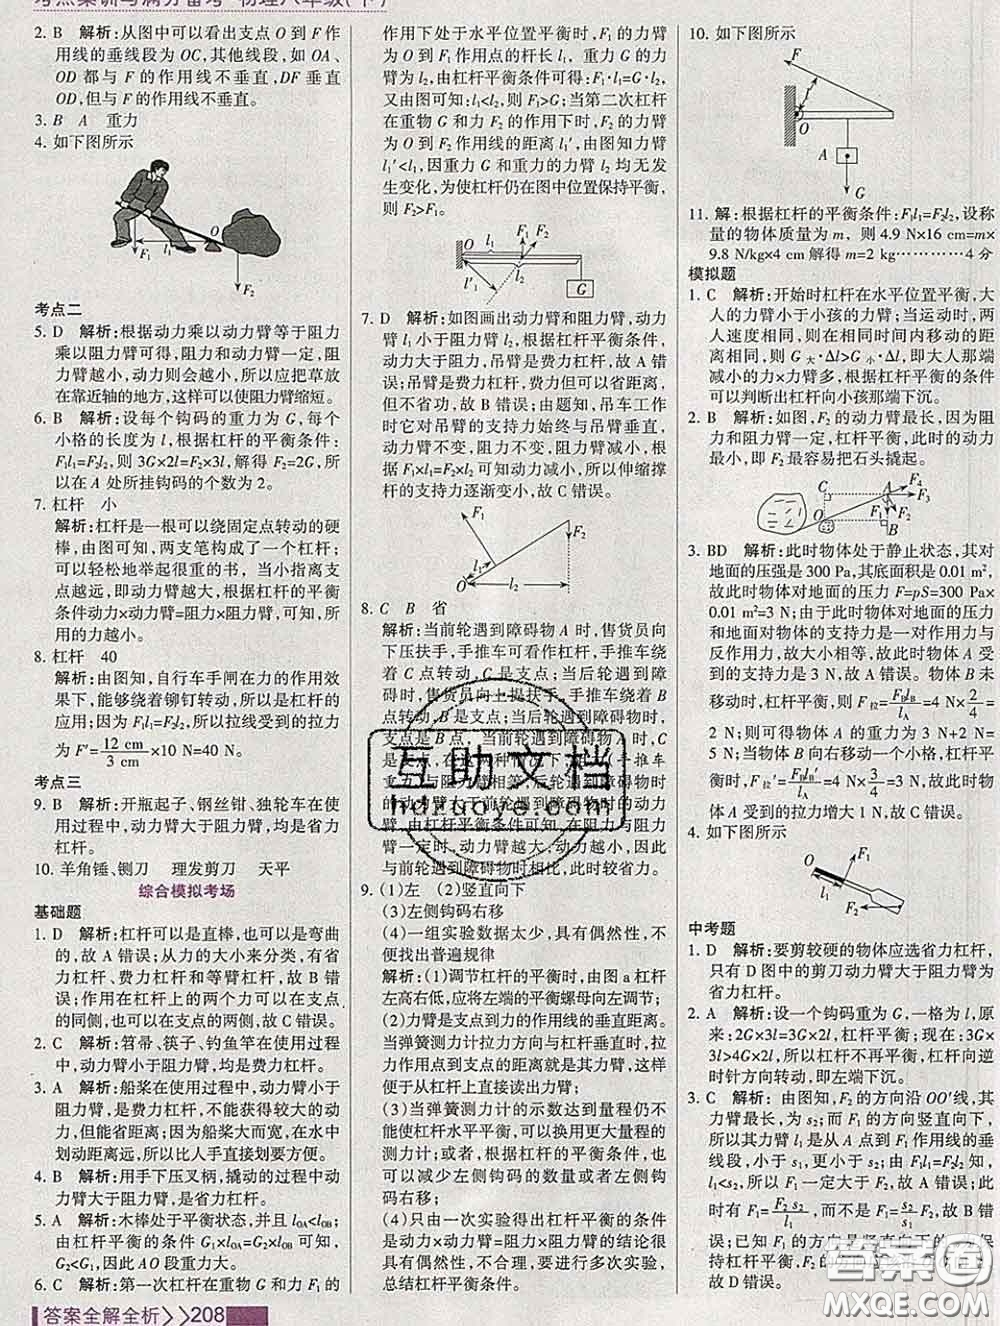 考点集训与满分备考 物理八年级(下)
2. B 解析:从图中可以看出支点 O 到 F 作
用线的垂线段为 OC,其他线段,如 OA、
OD 都与 F 的作用线不垂直,DF 垂直
OD,但与 F 的作用线不垂直。
3. B A 重力
4. 如下图所示
O
F₁
F₂
考点二
5. D 解析:根据动力乘以动力臂等于阻力
乘以阻力臂可得,阻力和动力臂一定,阻
力臂越小,动力则会越小,所以应把草放
在靠近轴的地方,这样可以使阻力臂缩短。
6. B 解析:设每个钩码的重力为 G,每个
小格的长度为 l,根据杠杆的平衡条件:
F₁l₁=F₂l₂,则 3G×2l=F₂×3l,解得 F₂=2G,所
以在 A 处所挂钩码的个数为 2。
7. 杠杆 小
解析:杠杆是一根可以绕固定点转动的硬
棒,由图可知,两支笔构成了一个杠杆;可
以轻松地举起很重的书,当小指离支点
越远,即动力臂越大,根据杠杆的平衡
条件动力×动力臂=阻力×阻力臂,可知,所
用的力越小。
8. 杠杆 40
解析:由图知,自行车手闸在力的作用效
果下,能够绕着铆钉转动,所以是杠杆的
应用;因为 F₁l₁=F₂l₂,所以拉线受到的拉力
为 F′=12 cm/3 cm×10 N=40 N。
考点三
9. B 解析:开瓶起子、钢丝钳、独轮车在使
用过程中,动力臂大于阻力臂,均是省力
杠杆。
10. 羊角锤、铡刀 理发剪刀 天平
综合模拟考场
基础题
1. D 解析:杠杆可以是直棒,也可以是弯曲
的,故 A 错误;从力的大小来分类,有省
力杠杆、费力杠杆和等臂杠杆,故 B 错
误;作用在杠杆上的两个力可以在支点
的同侧,也可以在支点的两侧,故 C 错误。
2. C 解析:笤帚、筷子、钓鱼竿在使用过程
中,动力臂小于阻力臂,均是费力杠杆。
3. A 解析:船桨在使用过程中,动力臂小于
阻力臂,是费力杠杆,不能获得较大的动
力,但能省距离;因为船桨大而宽,在水中
划动距离远,所以比人手直接划要方便。
4. B 解析:用手下压叉柄,撬动的过程中动
力臂大于阻力臂,是省力杠杆。
5. A 解析:木棒处于平衡状态,并且 lOA<lOB,
由杠杆的平衡条件 G₁×lOA=G₂×lOB 可知
G₂<G₁,因此 AO 段重力大。
6. C 解析:第一次杠杆在重物 G 和力 F₁ 的
答案全解全析>>208
作用下处于水平位置平衡时,F₁ 的力臂
为 O 到 F₁ 作用点的杆长 l₁,重力 G 的力
臂为 l₂,由杠杆平衡条件可得:F₁·l₁=G·l₂,
又由图可知:l₁<l₂,则 F₁>G;当第二次杠杆
在重物 G 和力 F₂ 的作用下时,F₂ 的力臂
为 O 到 F₂ 作用线的距离,由图知力臂
l₁′<l₁,因重力 G 和重力的力臂 l₂ 均无发
生变化,为使杠杆仍在图中位置保持平衡,
则 F₂>F₁。
O
l₁
F₁
F₂
l′₁
l₂
G
7. D 解析:如图画出动力臂和阻力臂,动力
臂 l₁ 小于阻力臂 l₂,根据杠杆平衡条件,
动力大于阻力,吊臂是费力杠杆,故 A 错
误;吊臂是费力杠杆,但可以省距离,
但不省功,故 B 错误;由题知,吊车工作
时它对吊臂的支持力始终与吊臂垂直,
动力臂不变,阻力不变,阻力臂变小,根
据 F₁×l₁=F₂×l₂ 可知动力减小,所以伸缩撑
杆的支持力逐渐变小,故 C 错误。
F₁
F₂
l₁
O
l₂
8. C B 省
解析:当前轮遇到障碍物 A 时,售货员向
下压扶手,手推车可看作杠杆,手推车绕
着 C 点转动,C 是支点;当后轮遇到障
碍时,售货员向上提扶手,手推车绕着 B
点转动,B 是支点;当后轮遇到障碍物时,
动力臂大于前轮遇到障碍物时的动力
臂,由杠杆平衡条件可知,在阻力与阻力
臂一定时,动力臂越大,动力越小,因此
后轮遇到障碍物时相比,此时较省力。
9. (1)左 (2)竖直向下
(3)左侧钩码右移
(4)一组实验数据太少,具有偶然性,不便
于找出普遍规律
解析:(1)调节杠杆的平衡时,由图 a 杠杆
左高右低,应将左端的平衡螺母向左调节;
(2)力臂是支点到力的作用线的垂直距离。
当弹簧测力计拉力方向与杠杆垂直时,
支点到作用点的距离就是其力臂,这样
便于从杠杆上直接读出力臂;
(3)当弹簧测力计的示数达到量程仍不能
使杠杆水平平衡,可以更换量程较大的
测力计;或者,根据杠杆平衡的条件,也
可以减少左侧钩码的数量或者左侧钩码
右移;
(4)只由一次实验得出杠杆平衡的条件
是动力×动力臂=阻力×阻力臂的结论很
具有偶然性,应该多做几次实验,来分析
总结杠杆平衡条件。
10. 如下图所示
F
l
O
A
G
11. 解:根据杠杆的平衡条件:F₁l₁=F₂l₂,设称
量的物体质量为 m,则 4.9 N×16 cm=m×
9.8 N/kg×4 cm 解得 m=2 kg …………4 分
模拟题
1. C 解析:开始时杠杆在水平位置平衡,大
人的力臂小于小孩的力臂;当运动时,两
人速度相同,则在相同时间内移动的距
离相同,则 G大·Δl>G小·Δl,即大人那端
减小的力×力臂多,根据杠杆的平衡条件
可以判断出杠杆向小孩那端下沉。
2. B 解析:如图,F₂ 的动力臂最长,因为阻
力和阻力臂一定,杠杆平衡,此时的动力
最小,即 F₂ 最容易把石头撬起。
C
A
F₄
F₃
O
F₁
F₂
B
3. BD 解析:此时物体处于静止状态,其对
地面的压强是 300 Pa,其底面积是 0.01 m²,
故此时物体对地面的压力 F=pS=300 Pa×
0.01 m²=3 N;由于此时物体对地面的压力
和地面对物体的支持力是一对作用力与
反作用力,故大小相等,因此此时物体 A
受到的支持力是 3 N,故 A 错误。物体 B 未
移动时,杠杆平衡,则 F拉=FBlB/lA=FB×2/4
=2 N,故此时物体 A 的重力为 3 N+2 N=
5 N;当物体 B 向右移动一个小格,杠杆平
衡时,F拉′=FBlB′/lA=4 N×3/4=3 N,故此时物
体 A 受到的拉力增大 1 N,故 C 错误。
4. 如下图所示
F₁
l₁
O
F₂
中考题
1. D 解析:要剪较硬的物体应选省力杠杆,
只有 D 图中的剪刀动力臂大于阻力臂为
省力杠杆。
2. A 解析:设一个钩码重为 G,一格为 l,原
来:2G×3l=3G×2l,杠杆平衡;现在:3G×
3l>4G×2l,所以杠杆不再平衡,杠杆沿逆
时针方向转动,即左端下沉。
3. C 解析:由图知,F₂ 的方向沿 OO′线,其
力臂最长,为 s₂;F₁ 的方向竖直向下,
所以其力臂是从 A 点到 F₁ 作用线的垂
线段,小于 s₁,更小于 s₂,如图所示,所以
l₁<s₂,所以 F₁ 总大于 F₂;由于 F₁l₁=F₂s₂,
故有 F₁=F₂s₂/l₁,而不是 F₁=F₂s₂/s₁,故 C 正
互助文档
hdzuoye.com
答案圈
MXQE.COM